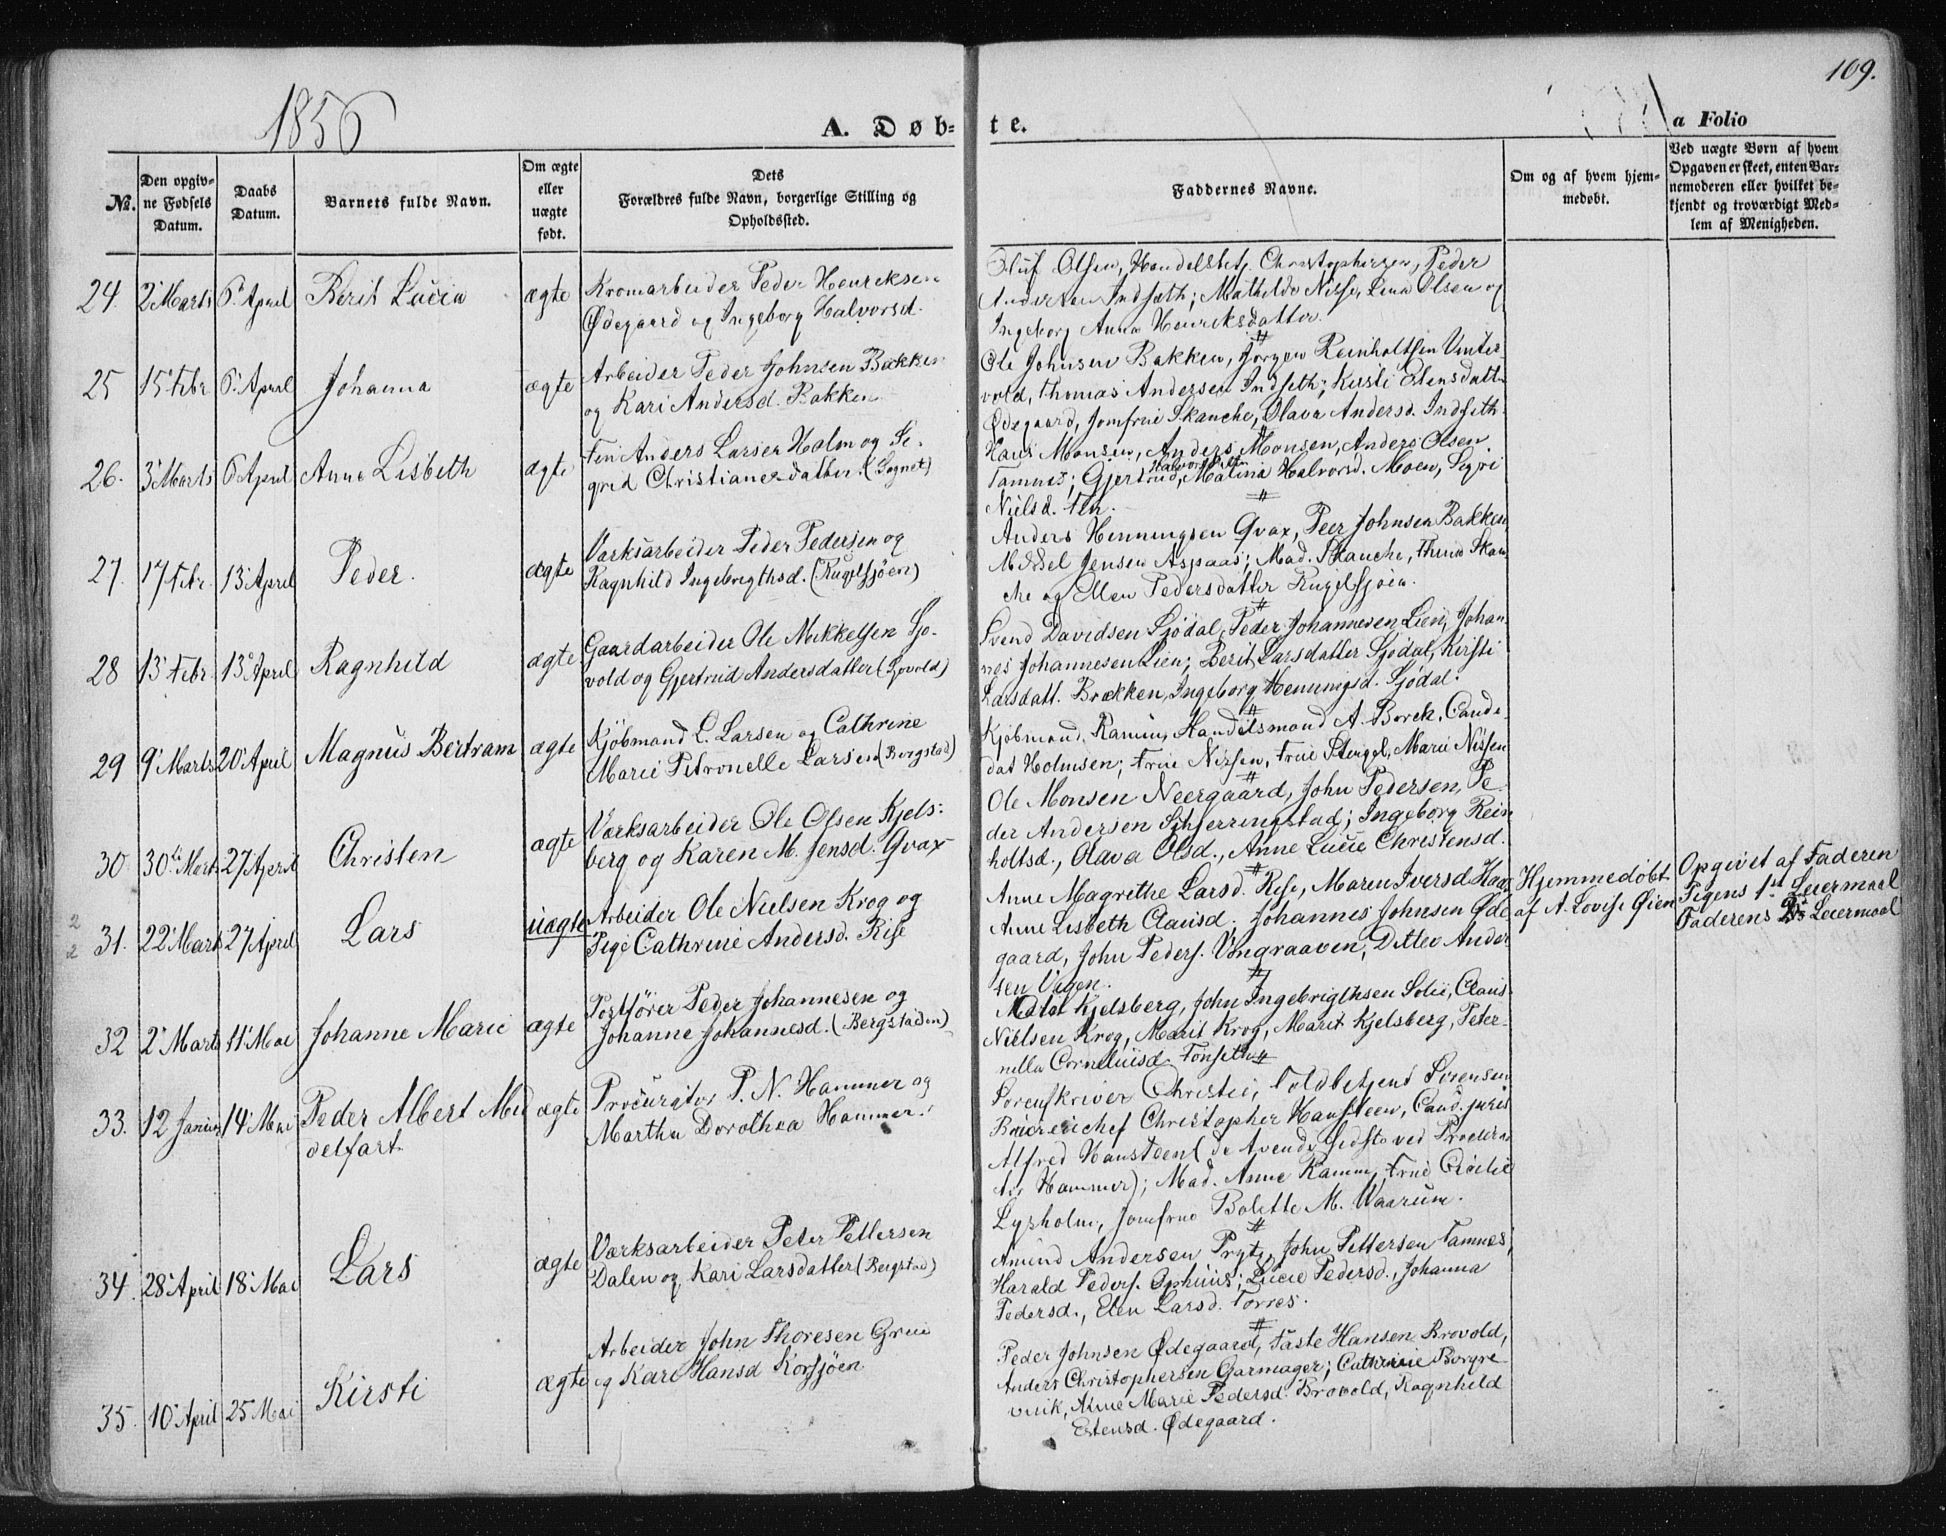 1856
109.
A. Døb-
te.
a Folio
No.
Den opgiv-
ne Fødsels
Datum.
Daabs
Datum.
Barnets fulde Navn.
Om ægte
eller
uægte
født.
Dets
Forældres fulde Navn, borgerlige Stilling og
Opholdssted.
Faddernes Navne.
Om og af hvem hjem-
medøbt.
Ved uægte Børn af hvem
Opgaven er skeet, enten Bar-
nemoderen eller hvilket be-
kjendt og troværdigt Med-
lem af Menigheden.
24. 2 Marts 6 April Berit Lucia ægte
Kromarbeider Peder Henriksen
Ødegaard og Ingeborg Halvorsd.
Oluf Olsen, Handelsbetj. Christophersen, Peder
Andersen Indseth; Mathilde Nisse, Lina Olsen og
Ingeborg Anna Henriksdatter.
25 15 Febr. 6 April Johanna ægte
Arbeider Peder Johnsen Bakken
og Kari Andersd. Bakken
Ole Johnsen Bakken, Jørgen Reinholtsen Vinter-
vold, Thomas Andersen Indseth; Kirsti Estensdatt.
Ødegaard, Jomfrue Skanche, Olava Andersd. Indseth
26. 3 Marts 6 April Anne Lisbeth ægte
Anders Larsen Holm og Si-
grid Christiansdatter (Sognet)
Hans Monsen, Anders Monsen, Anders Olsen
Tamnes; Gjertrud Halvorsdatter, Malina Halvorsd. Moen, Sigri
Nielsd.
27. 17 Febr. 13 April Peder. ægte
Værksarbeider Peder Pedersen og
Ragnhild Ingebrigthsd. (Rugelsjøen)
Anders Henningsen Qvax, Peer Johnsen Bakken
Mikkel Jensen Aspaas; Mad. Skanche, Thrine Skan-
che og Ellen Pedersdatter Rugelsjøen.
28 13 Febr. 13 April Ragnhild ægte
Gaardarbeider Ole Mikkelsen Sjo-
vold og Gjertrud Andersdatter (Sjovold)
Svend Davidsen Sjødal, Peder Johannesen Lien, Johan-
nes Johannesen Lien; Berit Larsdatter Sjødal, Kirsti
Larsdatt. Brækken, Ingeborg Henningsd. Sjødal.
29 9 Marts 20 April Magnus Bertram ægte
Kjøbmand L. Larsen og Cathrine
Marie Petronelle Larsen (Bergstad)
Kjøbmand Ramm, Handelsmand A. Borch, Candi-
dat Holmsen; Frue Nissen, Frue Stengel, Marie Nissen
30 30te Marts 27 April Christen ægte
Værksarbeider Ole Olsen Kjels-
berg og Karen M. Jensd. Qvax
Ole Monsen Neergaard, John Pedersen, Pe-
der Andersen Schjerringstad; Ingeborg Rein-
holtsd., Olava Olsd., Anne Lucie Christensd.
31. 22 Marts 27 April Lars uægte
Arbeider Ole Nielsen Krog og
Pige Cathrine Andersd. Rise
Anne Magrethe Larsd. Rise, Maren Iversd. Haas
Anne Lisbeth Clausd.; Johannes Johnsen Øde-
gaard, John Peders. Vongraaven, Ditlev Ander-
sen Vigen.
Hjemmedøbt
af A. Lovise Øien
Opgivet af Faderen
Pigens 1ste Leiermaal
Faderens 2det Leiermaal
32 2 Marts 11 Mai Johanne Marie ægte
Postfører Peder Johannesen og
Johanne Johannesd. (Bergstaden)
Kjelsberg, John Ingebrigthsen Solie, Claus
Nielsen Krog, Marit Krog, Marit Kjelsberg, Peter-
nilla Corneliusd. Tønseth
33. 12 Januar 14 Mai Peder Albert Mid-
delfart ægte
Procurator P. N. Hammer og
Martha Dorothea Hammer.
Sorenskriver Christie, Toldbetjent Sørensen
Christopher Hansteen, Cand. juris
Alfred Hansteen (de tvende sidste ved Procura-
tor Hammer); Mad. Anne Ramm, Frue Cicilie
Lysholm, Jomfrue Bolette M. Waarum.
34. 28 April 18 Mai Lars ægte
Værksarbeider Peter Pettersen
Dalen og Kari Larsdatter (Bergstad)
Amund Andersen Prytz, John Pettersen Tamnes;
Harald Peders. Ophuus; Lucie Pedersd., Johanna
Pedersd., Elen Larsd. Torres.
35. 10 April 25 Mai Kirsti ægte
Arbeider John Thoresen Grue
og Kari Hansd Korssjøen
Peder Johnsen Ødegaard, Taste Hansen Brovold,
Anders Christophersen Garmager; Cathrine Borgre-
vink, Anne Marie Pedersd. Brovold, Ragnhild
Estensd. Ødegaard.